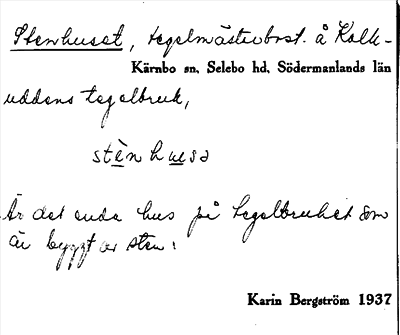 Stenhuset, tegelmästarbost. å Kalk-
Kärnbo sn, Selebo hd, Södermanlands län
uddens tegelbruk,
stènhusə
Är det enda hus på tegelbruket som
är byggt av sten.
Karin Bergström 1937